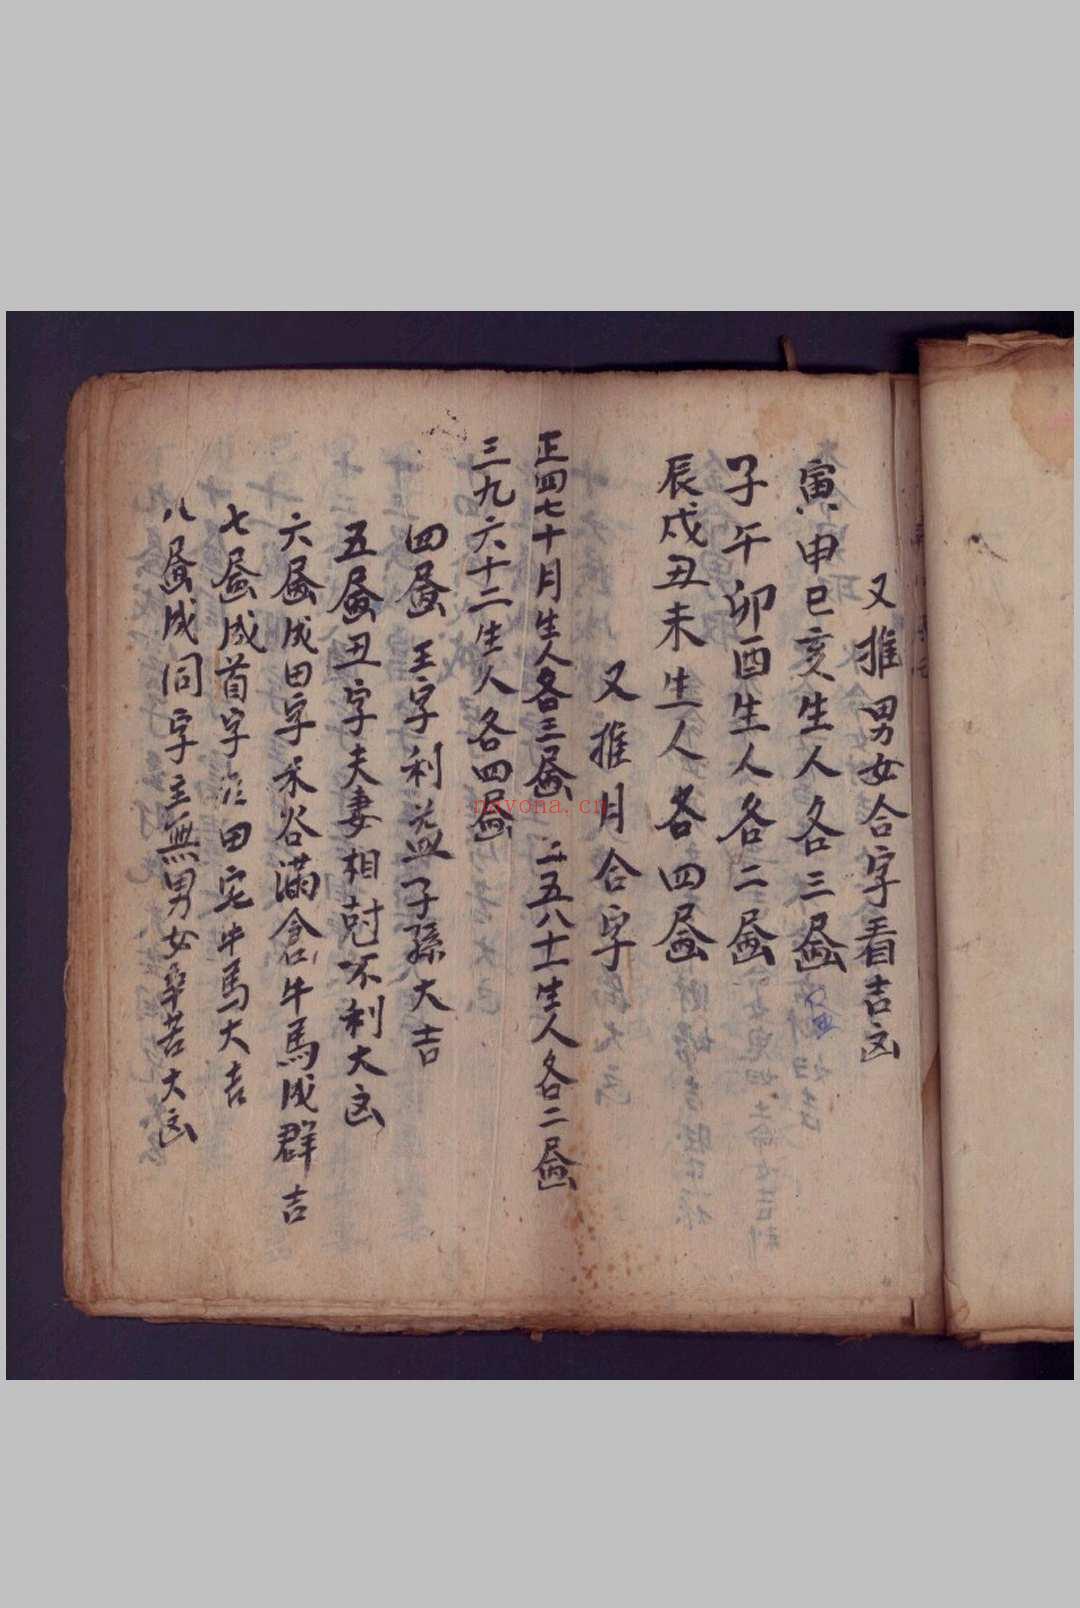 又推男女合字看吉凶
寅申巳亥生人各三昼
子午卯酉生人各二昼
辰戌丑未生人各四昼
又推月合字
正四七十月生人各三昼 二五八十一生人各二昼
三九六十二生人各四昼
四昼王字利益子孫大吉
五昼丑字夫妻相尅不利大凶
六昼成田字禾谷滿倉牛馬成群吉
七昼成首字田宅牛馬大吉
八昼成同字主無男女辛苦大凶
nayona.cn